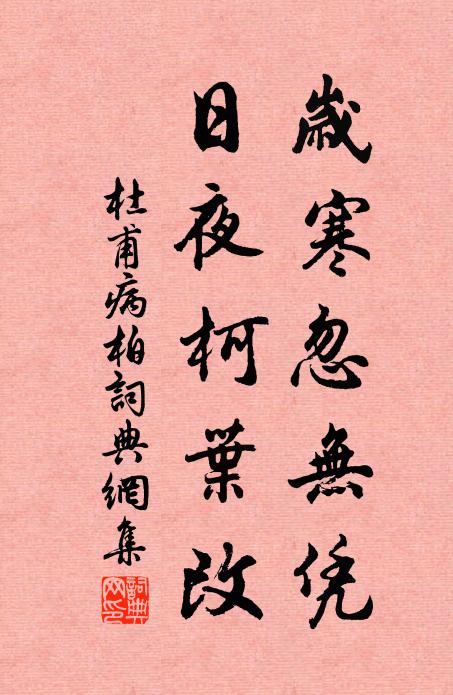 歲寒忽無凭
日夜柯葉改
杜甫病柏詞典網集
詞典网印